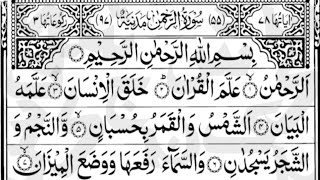 اٰیَاتُهَا ۷۸ (۵۵) سُوْرَةُ الرَّحْمٰنِ مَدَنِیَّةٌ (۹۷) رُكُوْعَاتُهَا ۳
بِسْمِ اللّٰهِ الرَّحْمٰنِ الرَّحِیْمِ
اَلرَّحْمٰنُ ۙ﴿۱﴾ عَلَّمَ الْقُرْاٰنَ ؕ﴿۲﴾ خَلَقَ الْاِنْسَانَ ۙ﴿۳﴾ عَلَّمَهُ
الْبَیَانَ ﴿۴﴾ اَلشَّمْسُ وَ الْقَمَرُ بِحُسْبَانٍ ﴿۵﴾ وَّ النَّجْمُ وَ
الشَّجَرُ یَسْجُدٰنِ ﴿۶﴾ وَ السَّمَآءَ رَفَعَهَا وَ وَضَعَ الْمِیْزَانَ ﴿۷﴾